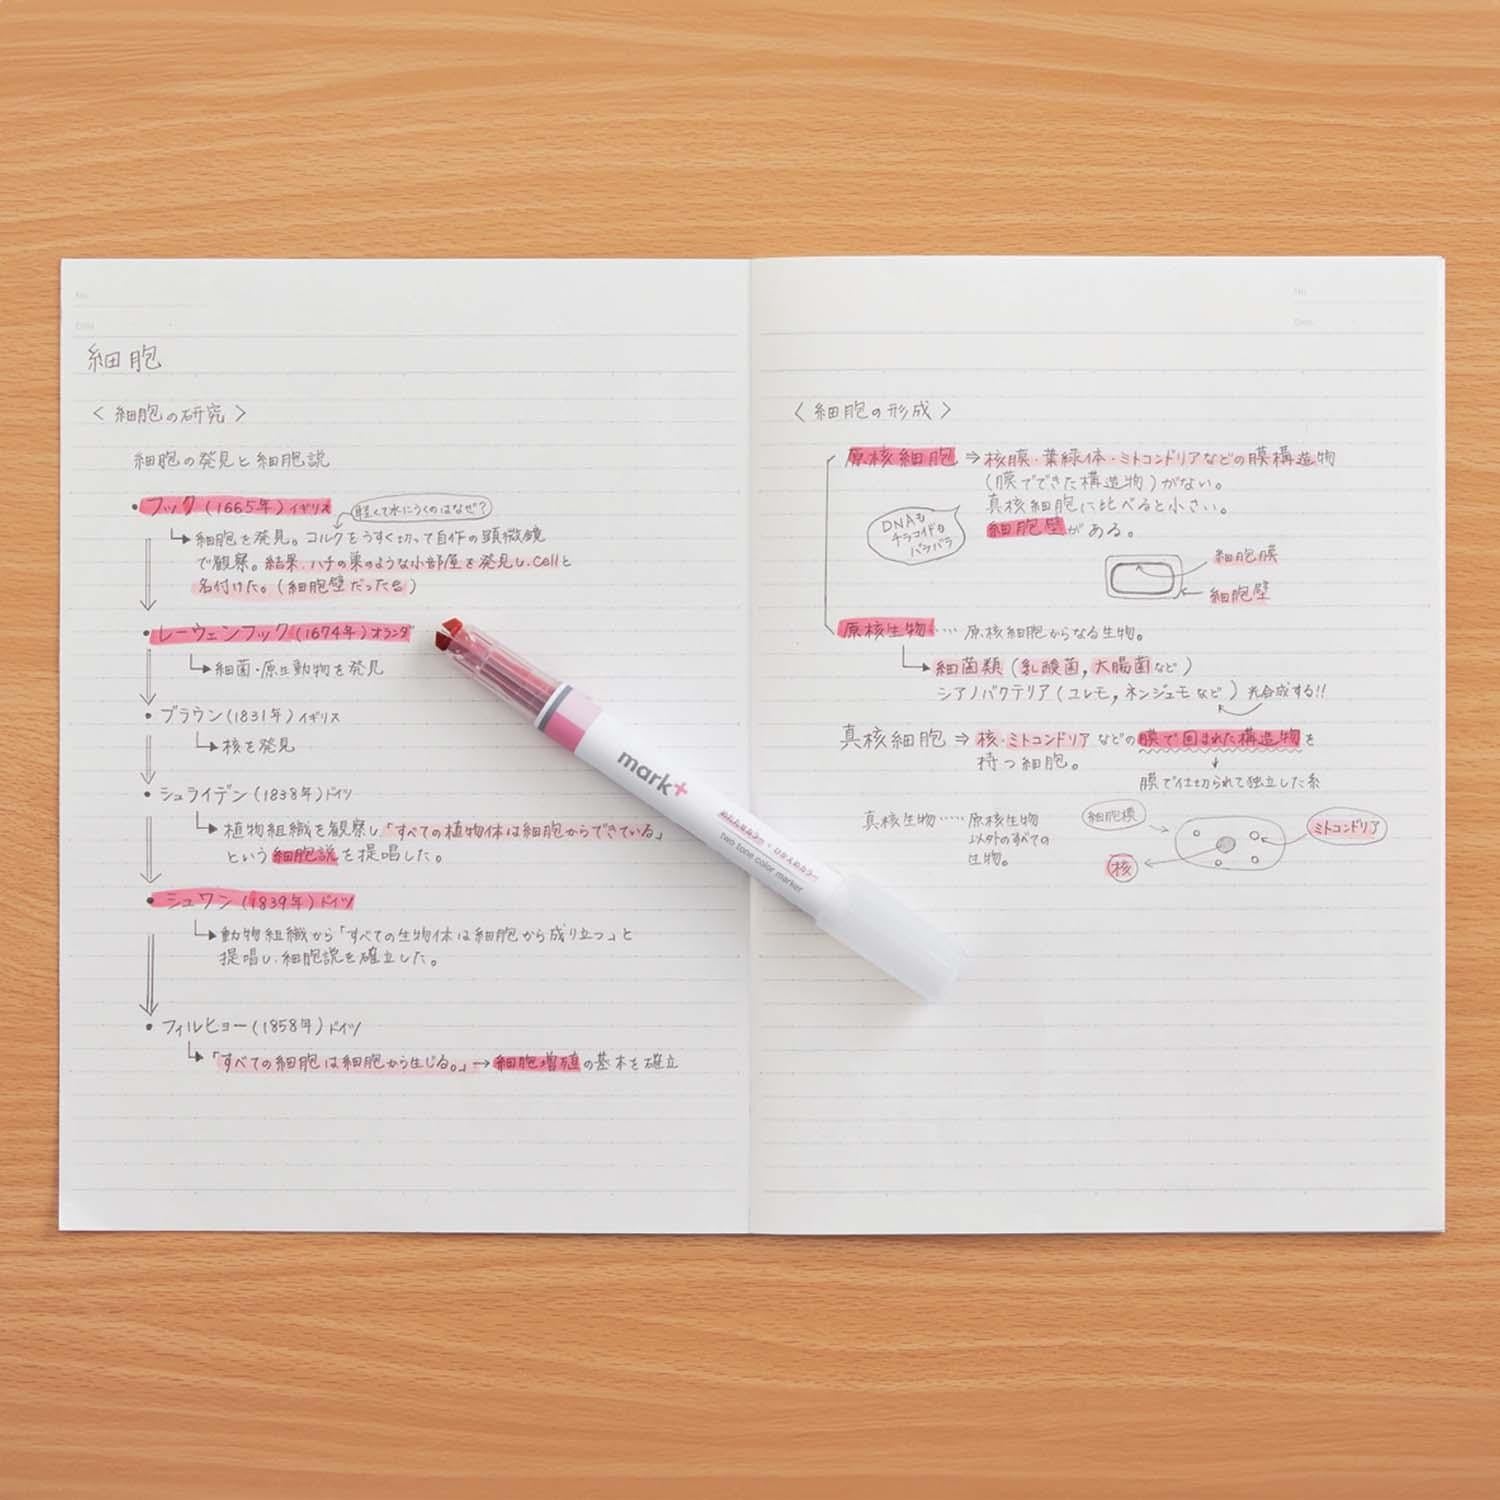 No.
Date
細胞
〈 細胞の研究 〉
細胞の発見と細胞説
• フック(1665年)イギリス
軽くて水にうくのはなぜ?
細胞を発見。コルクをうすく切って自作の顕微鏡
で観察。結果、ハチの巣のような小部屋を発見し、cellと
名付けた。(細胞壁だった
• レーウェンフック(1674年)オランダ
細菌・原生動物を発見
• ブラウン(1831年)イギリス
核を発見
• シュライデン(1838年)ドイツ
植物組織を観察し、「すべての植物体は細胞からできている」
という細胞説を提唱した。
• シュワン(1839年)ドイツ
動物組織から「すべての生物体は細胞から成り立つ」と
提唱し、細胞説を確立した。
• フィルヒョー(1858年)ドイツ
「すべての細胞は細胞から生じる。」→細胞増殖の基本を確立
mark+
two tone color marker
No.
Date
〈 細胞の形成 〉
原核細胞 ⇒ 核膜・葉緑体・ミトコンドリアなどの膜構造物
(膜でできた構造物)がない。
真核細胞に比べると小さい。
細胞壁がある。
DNAも
チラコイドも
バラバラ
細胞膜
細胞壁
原核生物…… 原核細胞からなる生物。
細菌類(乳酸菌,大腸菌など)
シアノバクテリア(ユレモ,ネンジュモなど)光合成する!!
真核細胞 ⇒ 核・ミトコンドリアなどの膜で囲まれた構造物を
持つ細胞。
膜で仕切られて独立した系
真核生物…… 原核生物
以外のすべての
生物。
細胞膜
ミトコンドリア
核